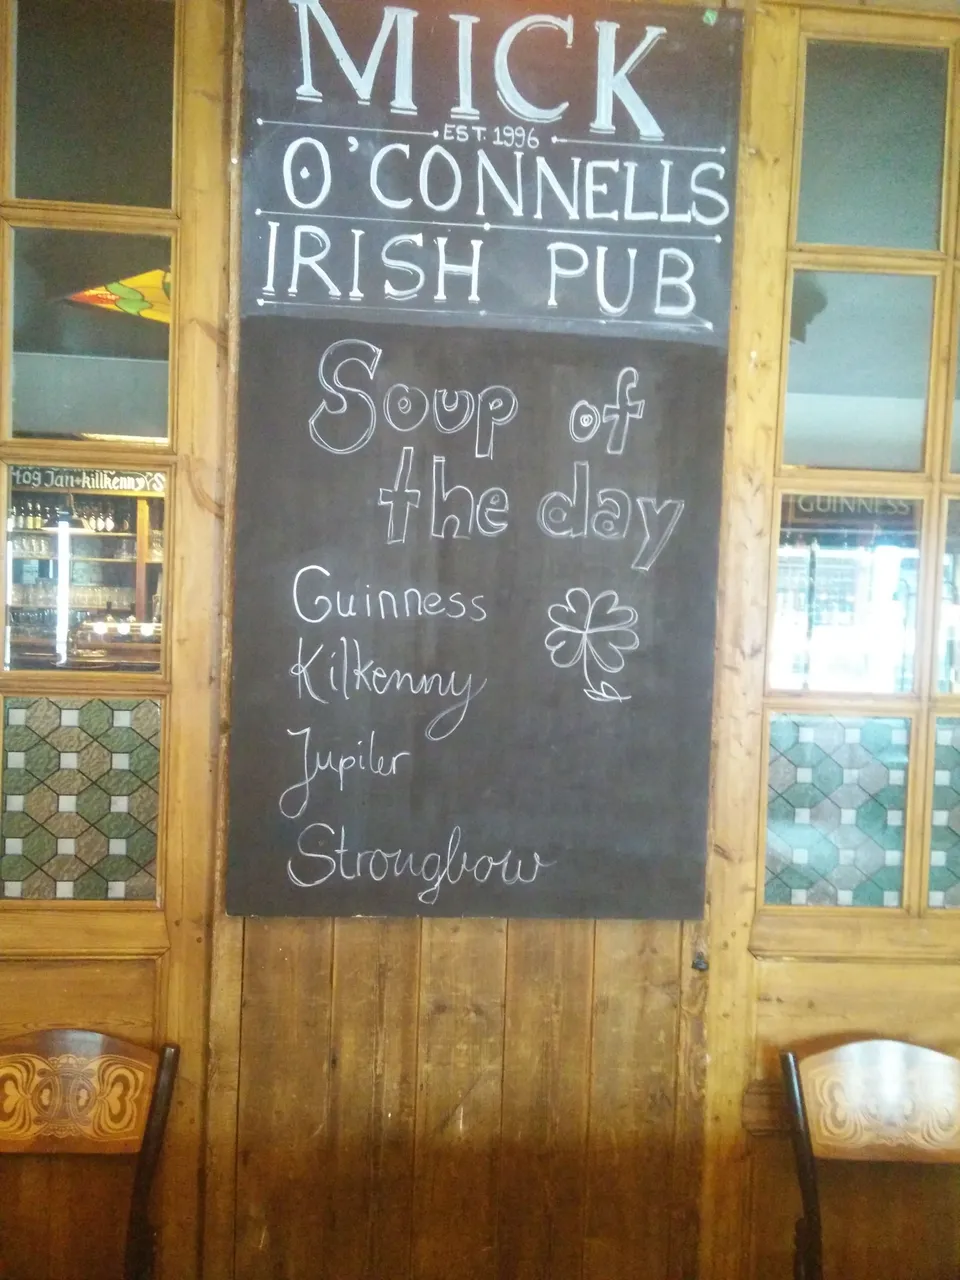 MICK
EST. 1996
O'CONNELLS
IRISH PUB
Soup of
the day
Guinness
Kilkenny
Jupiler
Strongbow
GUINNESS